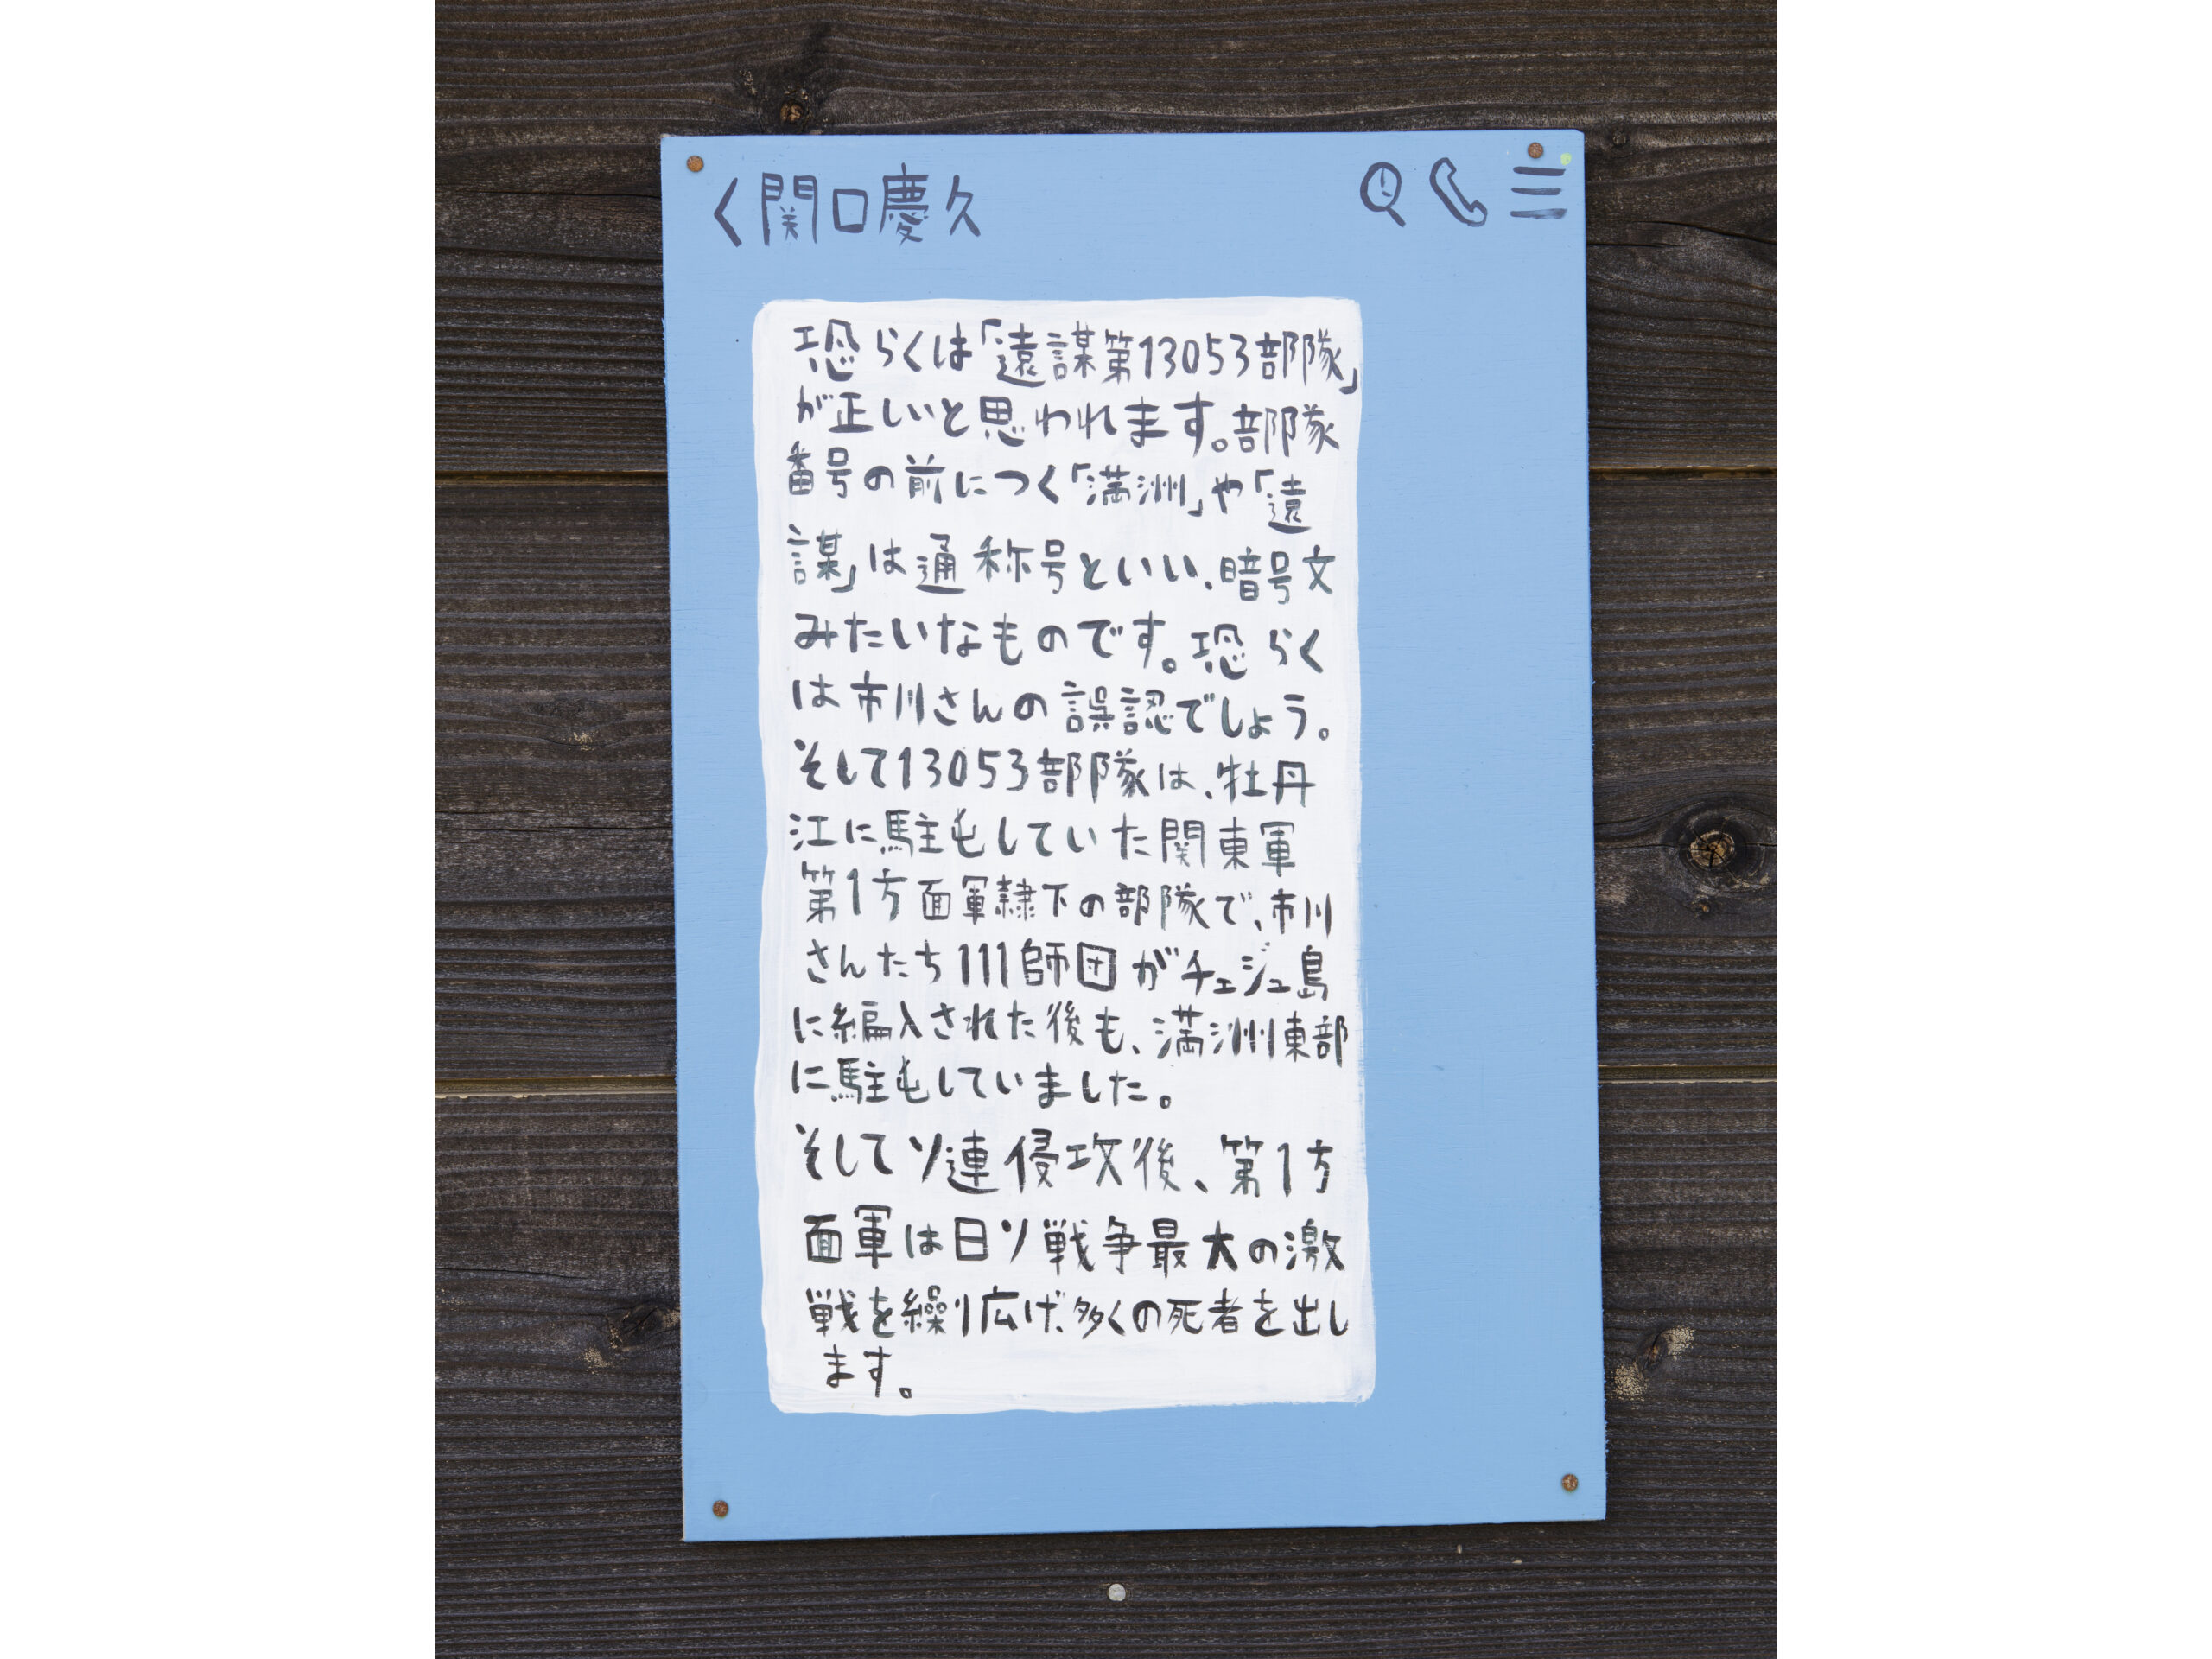 く関口慶久
恐らくは「遠謀第13053部隊」
が正しいと思われます。部隊
番号の前につく「満洲」や「遠
謀」は通称号といい、暗号文
みたいなものです。恐らく
は市川さんの誤認でしょう。
そして13053部隊は、牡丹
江に駐屯していた関東軍
第1方面軍隷下の部隊で、市川
さんたち111師団がチェジュ島
に編入された後も、満洲東部
に駐屯していました。
そしてソ連侵攻後、第1方
面軍は日ソ戦争最大の激
戦を繰り広げ、多くの死者を出し
ます。